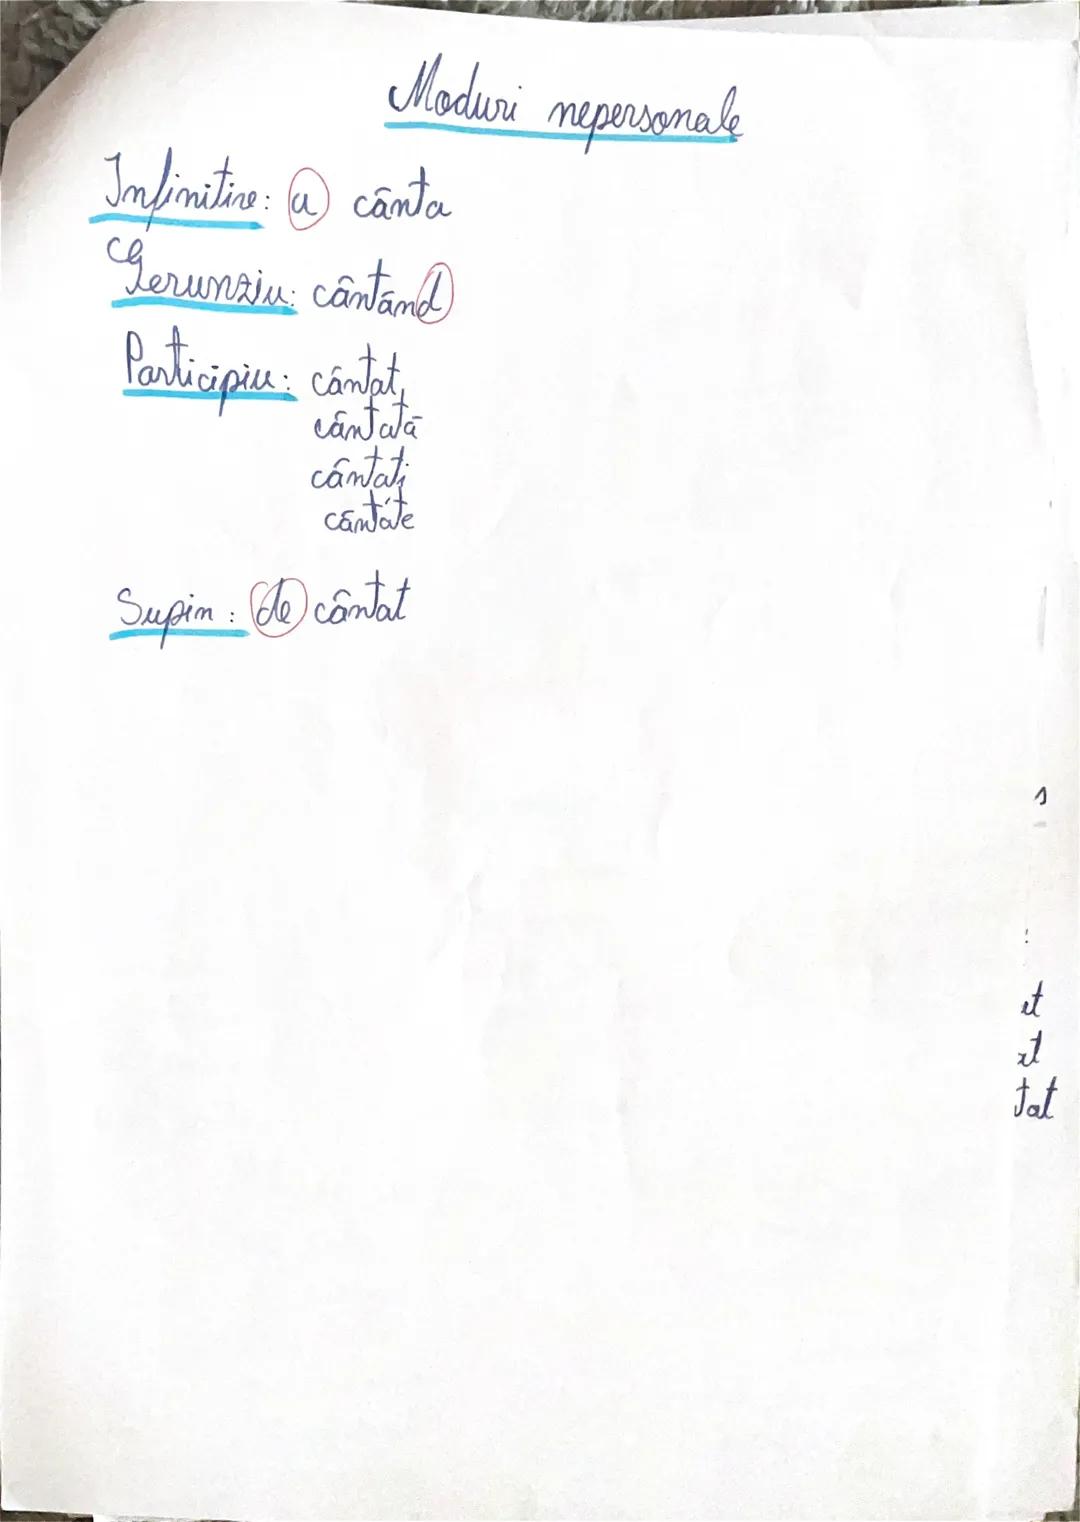 Moduri nepersonale
Infinitive: a cânta
Gerunziu: cântând
Participiu: cântat,
cântată
cântați
cântate
Supin: de cântat
tat